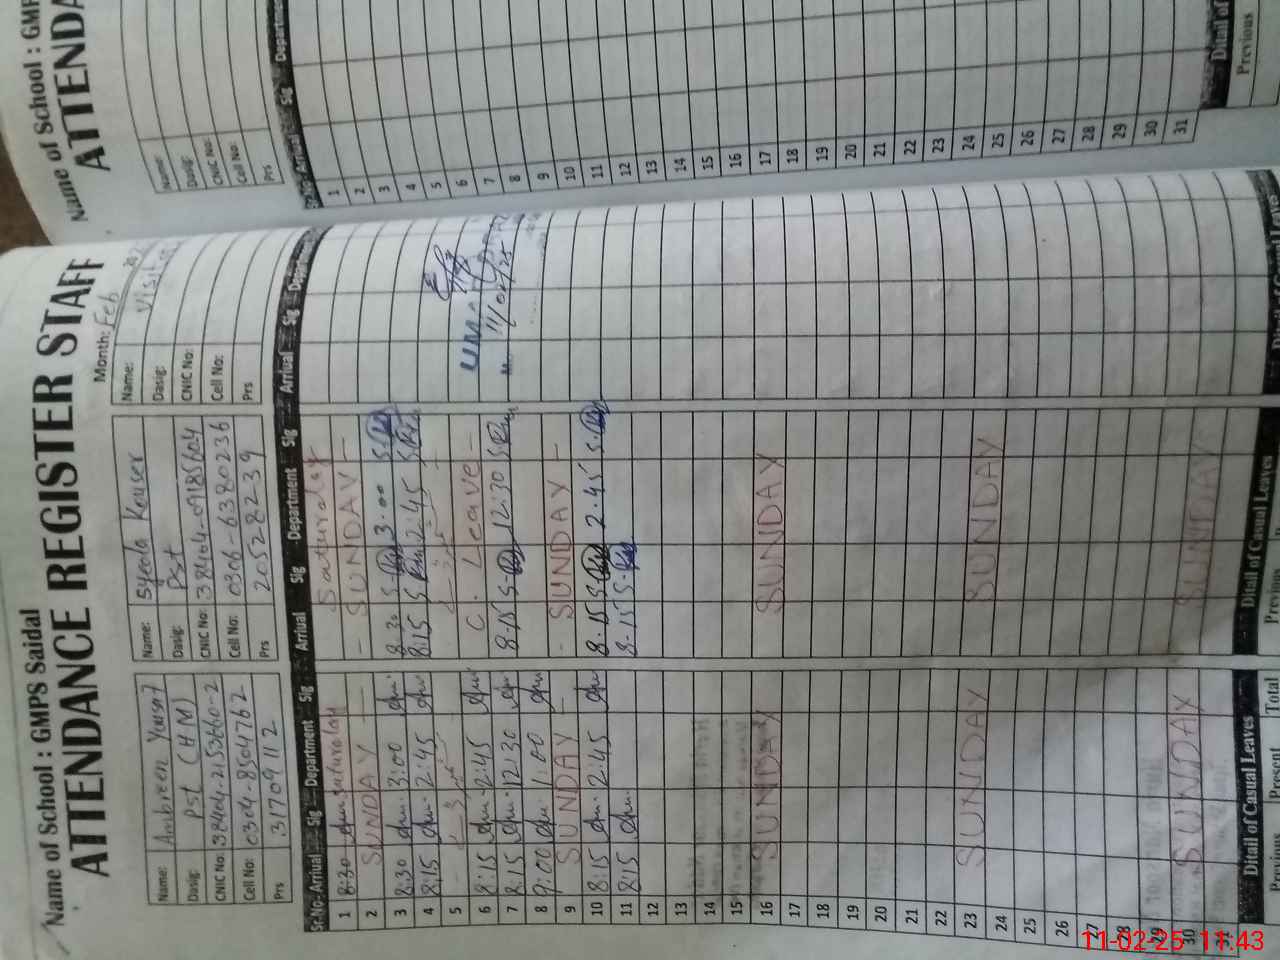 Name of School : GMPS Saidal
ATTENDANCE REGISTER STAFF
Month: Feb
Name: Ambreen Yousaf
Dasig: Pst (H M)
CNIC No: 38404-2153660-2
Cell No: 0304-8504762
Prs 31709112
Name: Syeda Kouser
Dasig: Pst
CNIC No: 38404-0918560-4
Cell No: 0306-6380236
Prs 20528239
Name:
Dasig: Visit
CNIC No:
Cell No:
Prs
Sr.No Arrival Sig Department Sig Arrival Sig Department Sig Arrival Sig Department
1 8:30 Saturday Saturday
2 SUNDAY - SUNDAY -
3 8:30 3:00 8:30 3:00
4 8:15 2:45 8:15 2:45
5
6 8:15 2:45 C. Leave -
7 8:15 12:30 8:15 12:30
8 9:00 1:00
9 SUNDAY - SUNDAY -
10 8:15 2:45 8:15 2:45
11 8:15 8:15
12
13
14
15
16 SUNDAY SUNDAY
17
18
19
20
21
22
23 SUNDAY SUNDAY
24
25
26
27
28
29
30 SUNDAY SUNDAY
31
11/02/25
Ditail of Casual Leaves Ditail of Casual Leaves
Previous Present Total Previous
Name of School : GMPS
ATTENDA
Name:
Dasig:
CNIC No:
Cell No:
Prs
Sr.No Arrival Sig Department
1
2
3
4
5
6
7
8
9
10
11
12
13
14
15
16
17
18
19
20
21
22
23
24
25
26
27
28
29
30
31
Ditail of
Previous
11-02-25 11:43